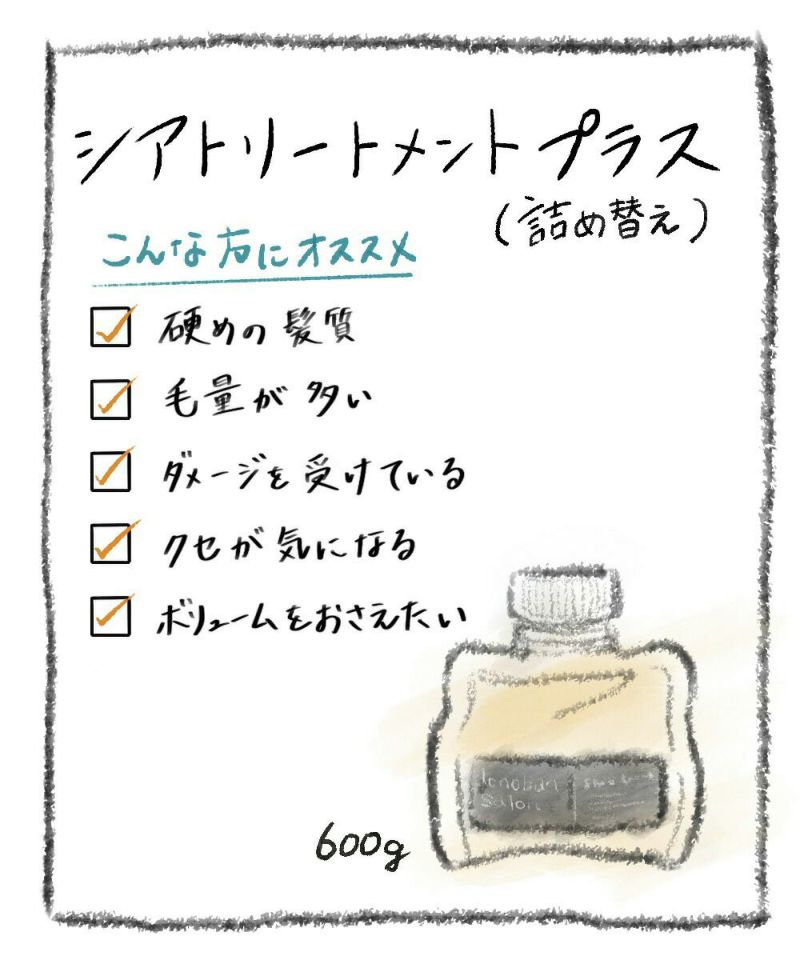 シアトリートメントプラス
(詰め替え)
こんな方にオススメ
硬めの髪質
毛量が多い
ダメージを受けている
クセが気になる
ボリュームをおさえたい
salon
600g